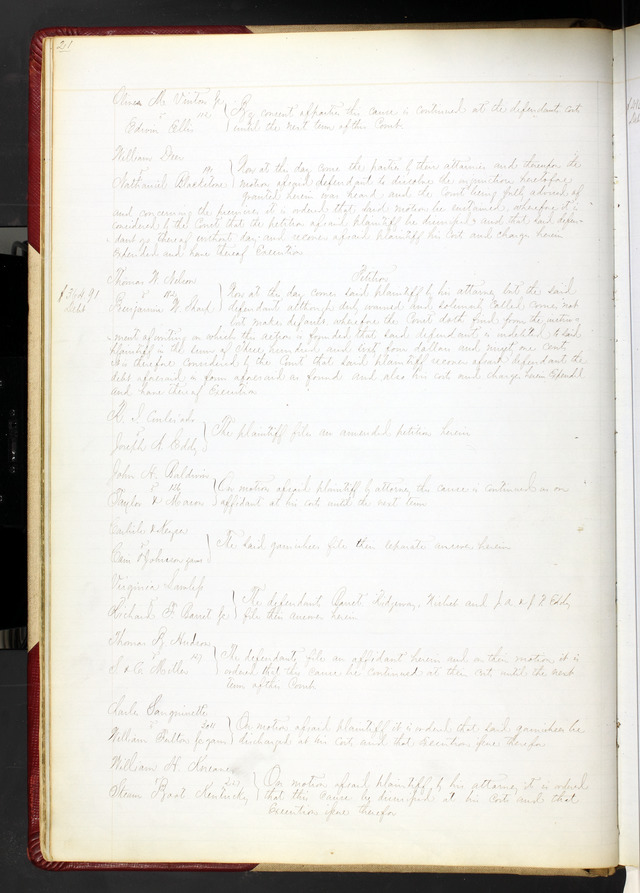 211
Oliver M. Vinton Jr
vs 112
Edwin Ellis
By consent of parties this cause is continued at the defendants cost
until the next term of this Court
William Deen
vs
Nathaniel Blackstone
Now at this day come the parties by their attornies and thereupon the
motion of said defendant to dissolve the injunction heretofore
granted herein was heard and the Court being fully advised of
and concerning the premises it is ordered that said motion be sustained, wherefore it is
considered by the Court that the petition of said plaintiff be dismissed and that said defen-
dant go thereof without day and recover of said plaintiff his cost and charges herein
expended and have thereof Execution
Thomas W. Nelson
vs
Benjamin W.
Petition
$304.91
Debt
Now at this day comes said plaintiff by his attorney but the said
defendant although duly summoned and solemnly called comes not
but makes default, wherefore the Court doth find from the instru-
ment of writing on which the action is founded, that said defendant is indebted to said
plaintiff in the sum of three hundred and four dollars and ninety one cents
it is therefore considered by the Court that said plaintiff recover of said defendant the
debt aforesaid in form aforesaid as found and also his cost and charges herein Expended
and have thereof Execution
vs
Joseph A. Eddy
The plaintiff files an amended petition herein
John H. Baldwin
vs 126
Taylor & Mason
On motion of said plaintiff by attorney this cause is continued on an
affidavit at his costs until the next term
vs
Cain & Johnson garn
The said garnishees file their separate answer herein
Virginia
vs
Richard F. Barret Jr
The defendants Barret, Ridgeway, and J. A. & J. F. Eddy
file their answer herein
Thomas B. Hudson
vs 147
S & C Miller
The defendants file an affidavit herein and on their motion it is
ordered that this cause be continued at their cost until the next
term of this Court
Charles Sanguinette
vs 204
William garn
On motion of said plaintiff it is ordered that said garnishee be
discharged at his cost and that Execution issue therefor
William H.
vs
Steam Boat Kentucky
On motion of said plaintiff by his attorney it is ordered
that this cause be dismissed at his cost and that
Execution issue therefor